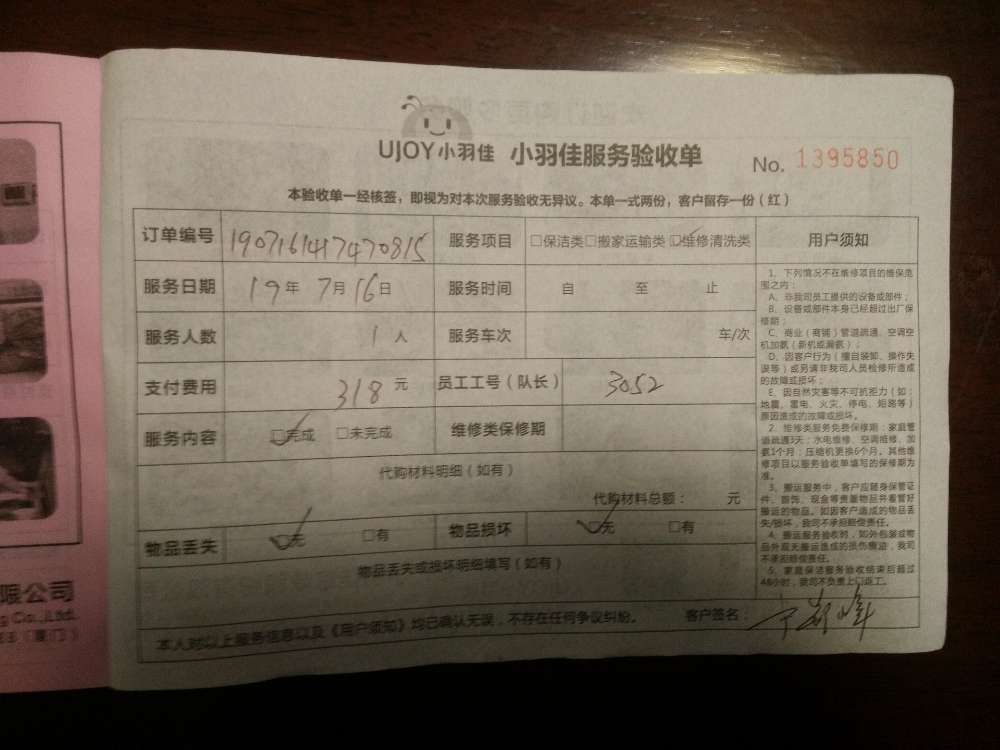 UJOY小羽佳 小羽佳服务验收单 No. 1395850
本验收单一经核签，即视为对本次服务验收无异议。本单一式两份，客户留存一份（红）
订单编号 1907161417470815 服务项目 □保洁类□搬家运输类☑维修清洗类
服务日期 19年 7月16日 服务时间 自 至 止
服务人数 1人 服务车次 车/次
支付费用 318元 员工工号（队长） 3052
服务内容 ☑完成 □未完成 维修类保修期
代购材料明细（如有）
代购材料总额： 元
物品丢失 ☑无 □有 物品损坏 ☑无 □有
物品丢失或损坏明细填写（如有）
本人对以上服务信息以及《用户须知》均已确认无误，不存在任何争议纠纷。 客户签名：
用户须知
1、下列情况不在维修项目的维保范
围之内：
A、非我司员工提供的设备或部件；
B、设备或部件本身已经超过出厂保
修期；
C、商业（商铺）管道疏通、空调空
机加氨（新机或漏氨）；
D、因客户行为（擅自装卸、操作失
误等）或另请非我司人员检修所造成
的故障或损坏；
E、因自然灾害等不可抗拒力（如：
地震、雷电、火灾、停电、短路等）
原因造成的故障或损坏。
2、维修类服务免费保修期：家庭管
道疏通3天；水电维修、空调维修、加
氨1个月；压缩机更换6个月。其他维
修项目以服务验收单填写的保修期为
准。
3、搬运服务中，客户应随身保管证
件、首饰、现金等贵重物品并看管好
搬运的物品。如因客户造成的物品丢
失/损坏，我司不承担赔偿责任。
4、搬运服务验收时，如外包装或物
品外观无搬运造成的损伤痕迹，我司
不承担赔偿责任。
5、家庭保洁服务验收结束后超过
48小时，我司不负责上门返工。
限公司
Co.,Ltd.
（厦门）